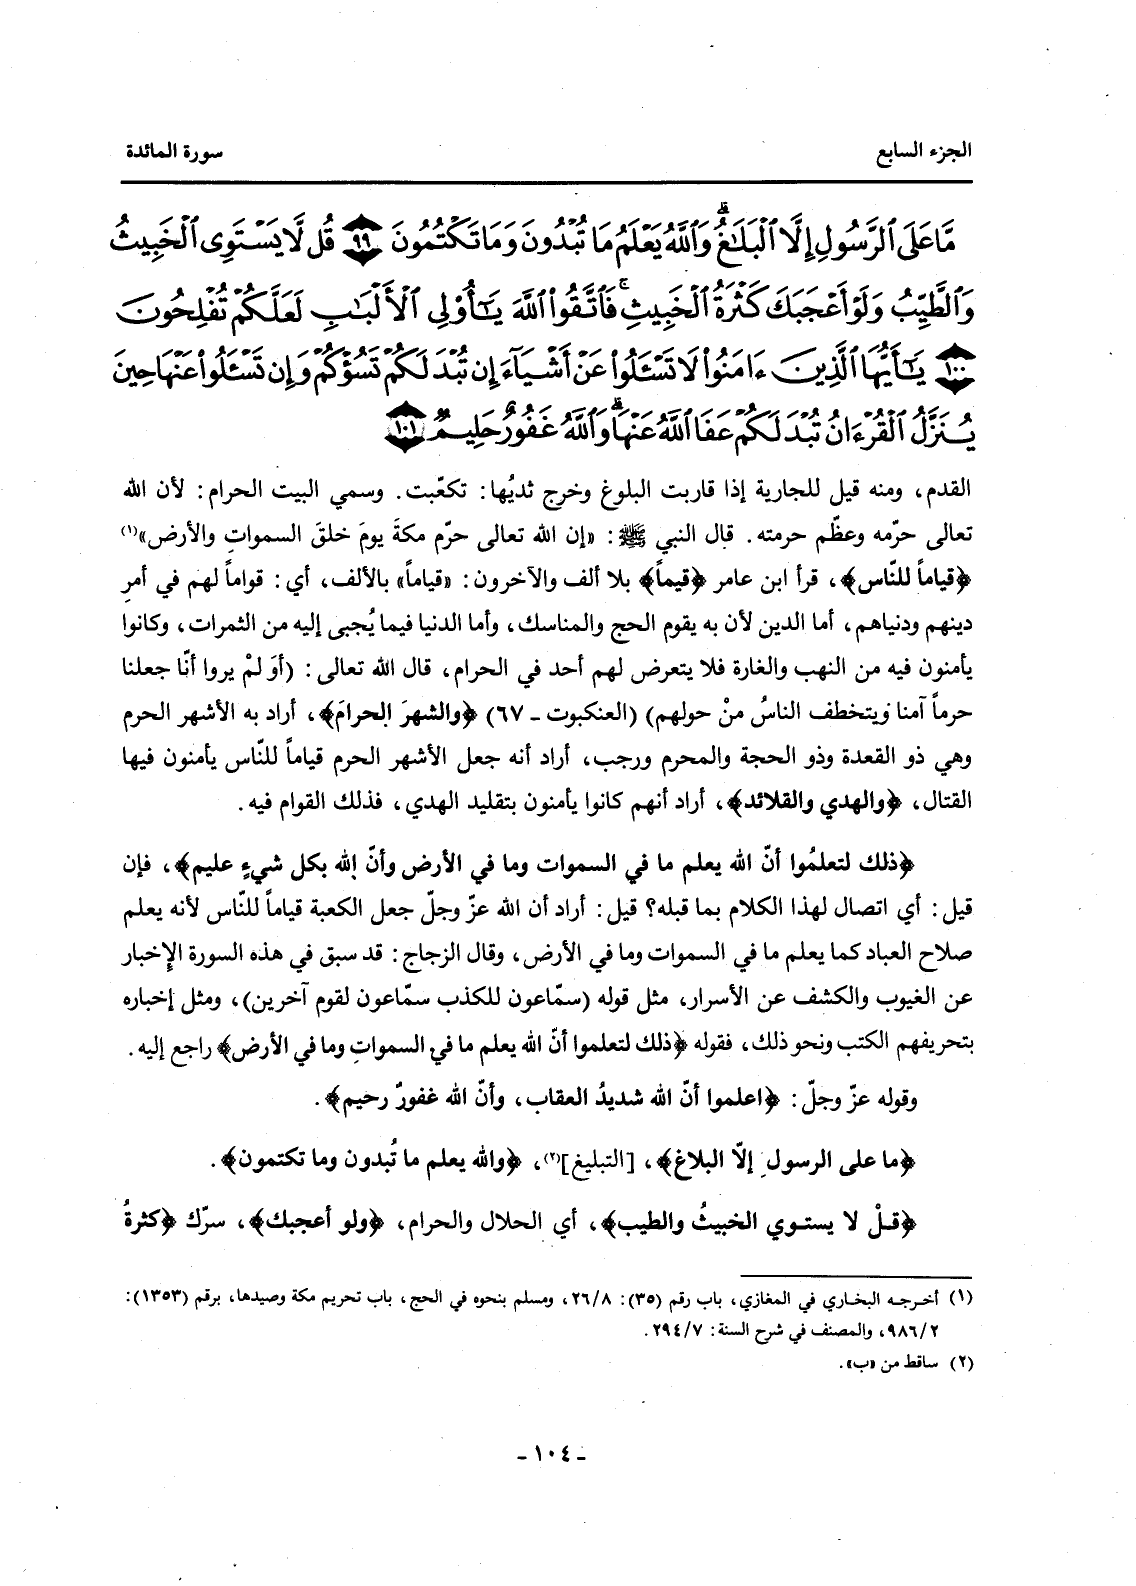 الجزء السابع
سورة المائدة
مَّا عَلَى ٱلرَّسُولِ إِلَّا ٱلْبَلَـٰغُ ۗ وَٱللَّهُ يَعْلَمُ مَا تُبْدُونَ وَمَا تَكْتُمُونَ ٩٩ قُل لَّا يَسْتَوِى ٱلْخَبِيثُ
وَٱلطَّيِّبُ وَلَوْ أَعْجَبَكَ كَثْرَةُ ٱلْخَبِيثِ ۚ فَٱتَّقُوا۟ ٱللَّهَ يَـٰٓأُو۟لِى ٱلْأَلْبَـٰبِ لَعَلَّكُمْ تُفْلِحُونَ
١٠٠ يَـٰٓأَيُّهَا ٱلَّذِينَ ءَامَنُوا۟ لَا تَسْـَٔلُوا۟ عَنْ أَشْيَآءَ إِن تُبْدَ لَكُمْ تَسُؤْكُمْ وَإِن تَسْـَٔلُوا۟ عَنْهَا حِينَ
يُنَزَّلُ ٱلْقُرْءَانُ تُبْدَ لَكُمْ عَفَا ٱللَّهُ عَنْهَا ۗ وَٱللَّهُ غَفُورٌ حَلِيمٌ ١٠١
القدم، ومنه قيل للجارية إذا قاربت البلوغ وخرج ثديُها: تكعّبت. وسمي البيت الحرام: لأن الله
تعالى حرّمه وعظّم حرمته. قال النبي ﷺ: «إن الله تعالى حرّم مكةَ يومَ خلقَ السمواتِ والأرض»(١)
﴿قياماً للنّاس﴾، قرأ ابن عامر ﴿قيماً﴾ بلا ألف والآخرون: «قياماً» بالألف، أي: قواماً لهم في أمرِ
دينهم ودنياهم، أما الدين لأن به يقوم الحج والمناسك، وأما الدنيا فيما يُجبى إليه من الثمرات، وكانوا
يأمنون فيه من النهب والغارة فلا يتعرض لهم أحد في الحرام، قال الله تعالى: (أوَ لمْ يروا أنّا جعلنا
حرماً آمنا ويتخطف الناسُ منْ حولهم) (العنكبوت ـ ٦٧) ﴿والشهرَ الحرامَ﴾، أراد به الأشهر الحرم
وهي ذو القعدة وذو الحجة والمحرم ورجب، أراد أنه جعل الأشهر الحرم قياماً للنّاس يأمنون فيها
القتال، ﴿والهدي والقلائد﴾، أراد أنهم كانوا يأمنون بتقليد الهدي، فذلك القوام فيه.
﴿ذلك لتعلمُوا أنّ الله يعلم ما في السموات وما في الأرض وأنّ الله بكل شيءٍ عليم﴾، فإن
قيل: أي اتصال لهذا الكلام بما قبله؟ قيل: أراد أن الله عزّ وجلّ جعل الكعبة قياماً للنّاس لأنه يعلم
صلاح العباد كما يعلم ما في السموات وما في الأرض، وقال الزجاج: قد سبق في هذه السورة الإخبار
عن الغيوب والكشف عن الأسرار، مثل قوله (سمّاعون للكذب سمّاعون لقوم آخرين)، ومثل إخباره
بتحريفهم الكتب ونحو ذلك، فقوله ﴿ذلك لتعلموا أنّ الله يعلم ما في السمواتِ وما في الأرض﴾ راجع إليه.
وقوله عزّ وجلّ: ﴿اعلموا أنّ الله شديدُ العقاب، وأنّ الله غفورٌ رحيم﴾.
﴿ما على الرسولِ إلّا البلاغ﴾، [التبليغ](٢)، ﴿والله يعلم ما تُبدون وما تكتمون﴾.
﴿قـلْ لا يستـوي الخبيثُ والطيب﴾، أي الحلال والحرام، ﴿ولو أعجبك﴾، سرّك ﴿كثرةُ
(١) أخرجه البخاري في المغازي، باب رقم (٣٥): ٢٦/٨، ومسلم بنحوه في الحج، باب تحريم مكة وصيدها، برقم (١٣٥٣):
٩٨٦/٢، والمصنف في شرح السنة: ٢٩٤/٧.
(٢) ساقط من «ب».
ـ ١٠٤ ـ